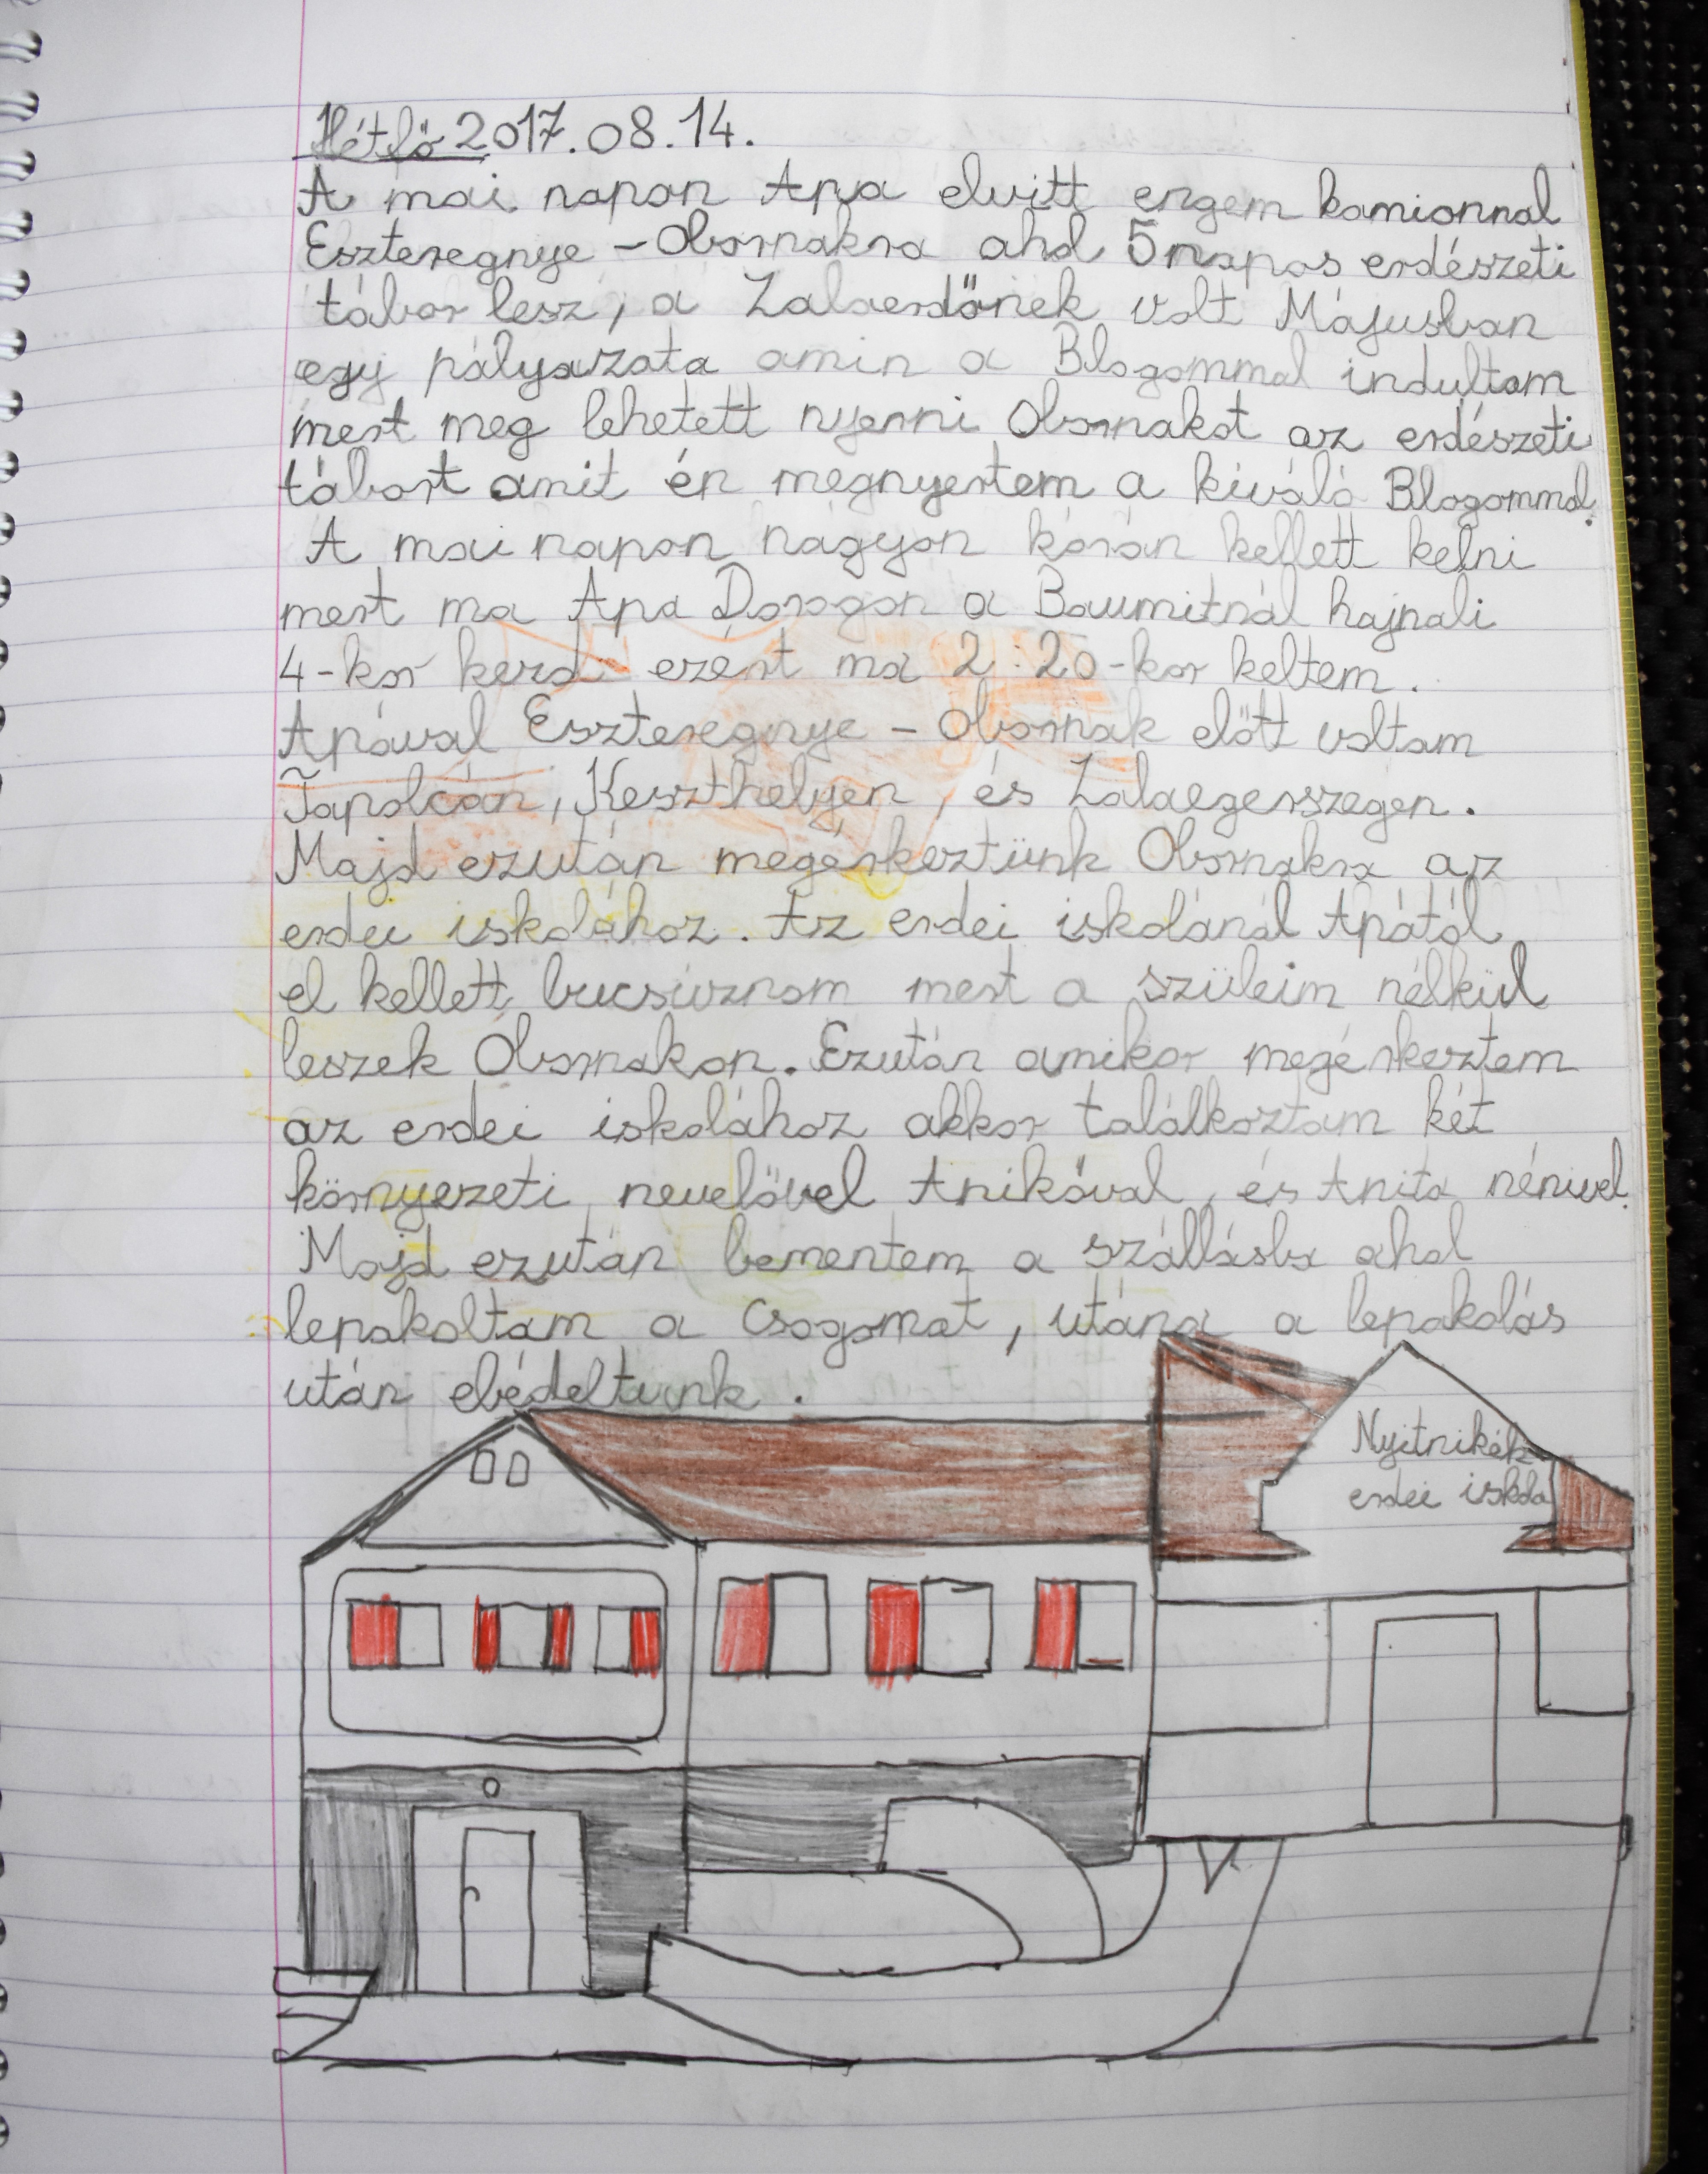 Hétfő 2017.08.14.
A mai napon Apa elvitt engem kamionnal
Eszteregnye - Obornakra ahol 5 napos erdészeti
tábor lesz, a Zalaerdőnek volt Májusban
egy pályazata amin a Blogommal indultam
mert meg lehetett nyerni Obornakot az erdészeti
tábort amit én megnyertem a kiváló Blogommal.
A mai napon nagyon korán kellett kelni
mert ma Apa Dorogon a Baumitnál hajnali
4-kor kezd ezért ma 2:20-kor keltem.
Apával Eszteregnye - Obornak előtt voltam
Tapolcán, Keszthelyen, és Zalaegerszegen.
Majd ezután megérkeztünk Obornakra az
erdei iskolához. Az erdei iskolánál Apától
el kellett bucsúznom mert a szüleim nélkül
leszek Obornakon. Ezután amikor megérkeztem
az erdei iskolához akkor találkoztam két
környezeti nevelővel Anikóval, és Anita nénivel.
Majd ezután bementem a szállásba ahol
lepakoltam a csogomat, utána a lepakolás
után ebédeltunk.
Nyitnikék
erdei iskola